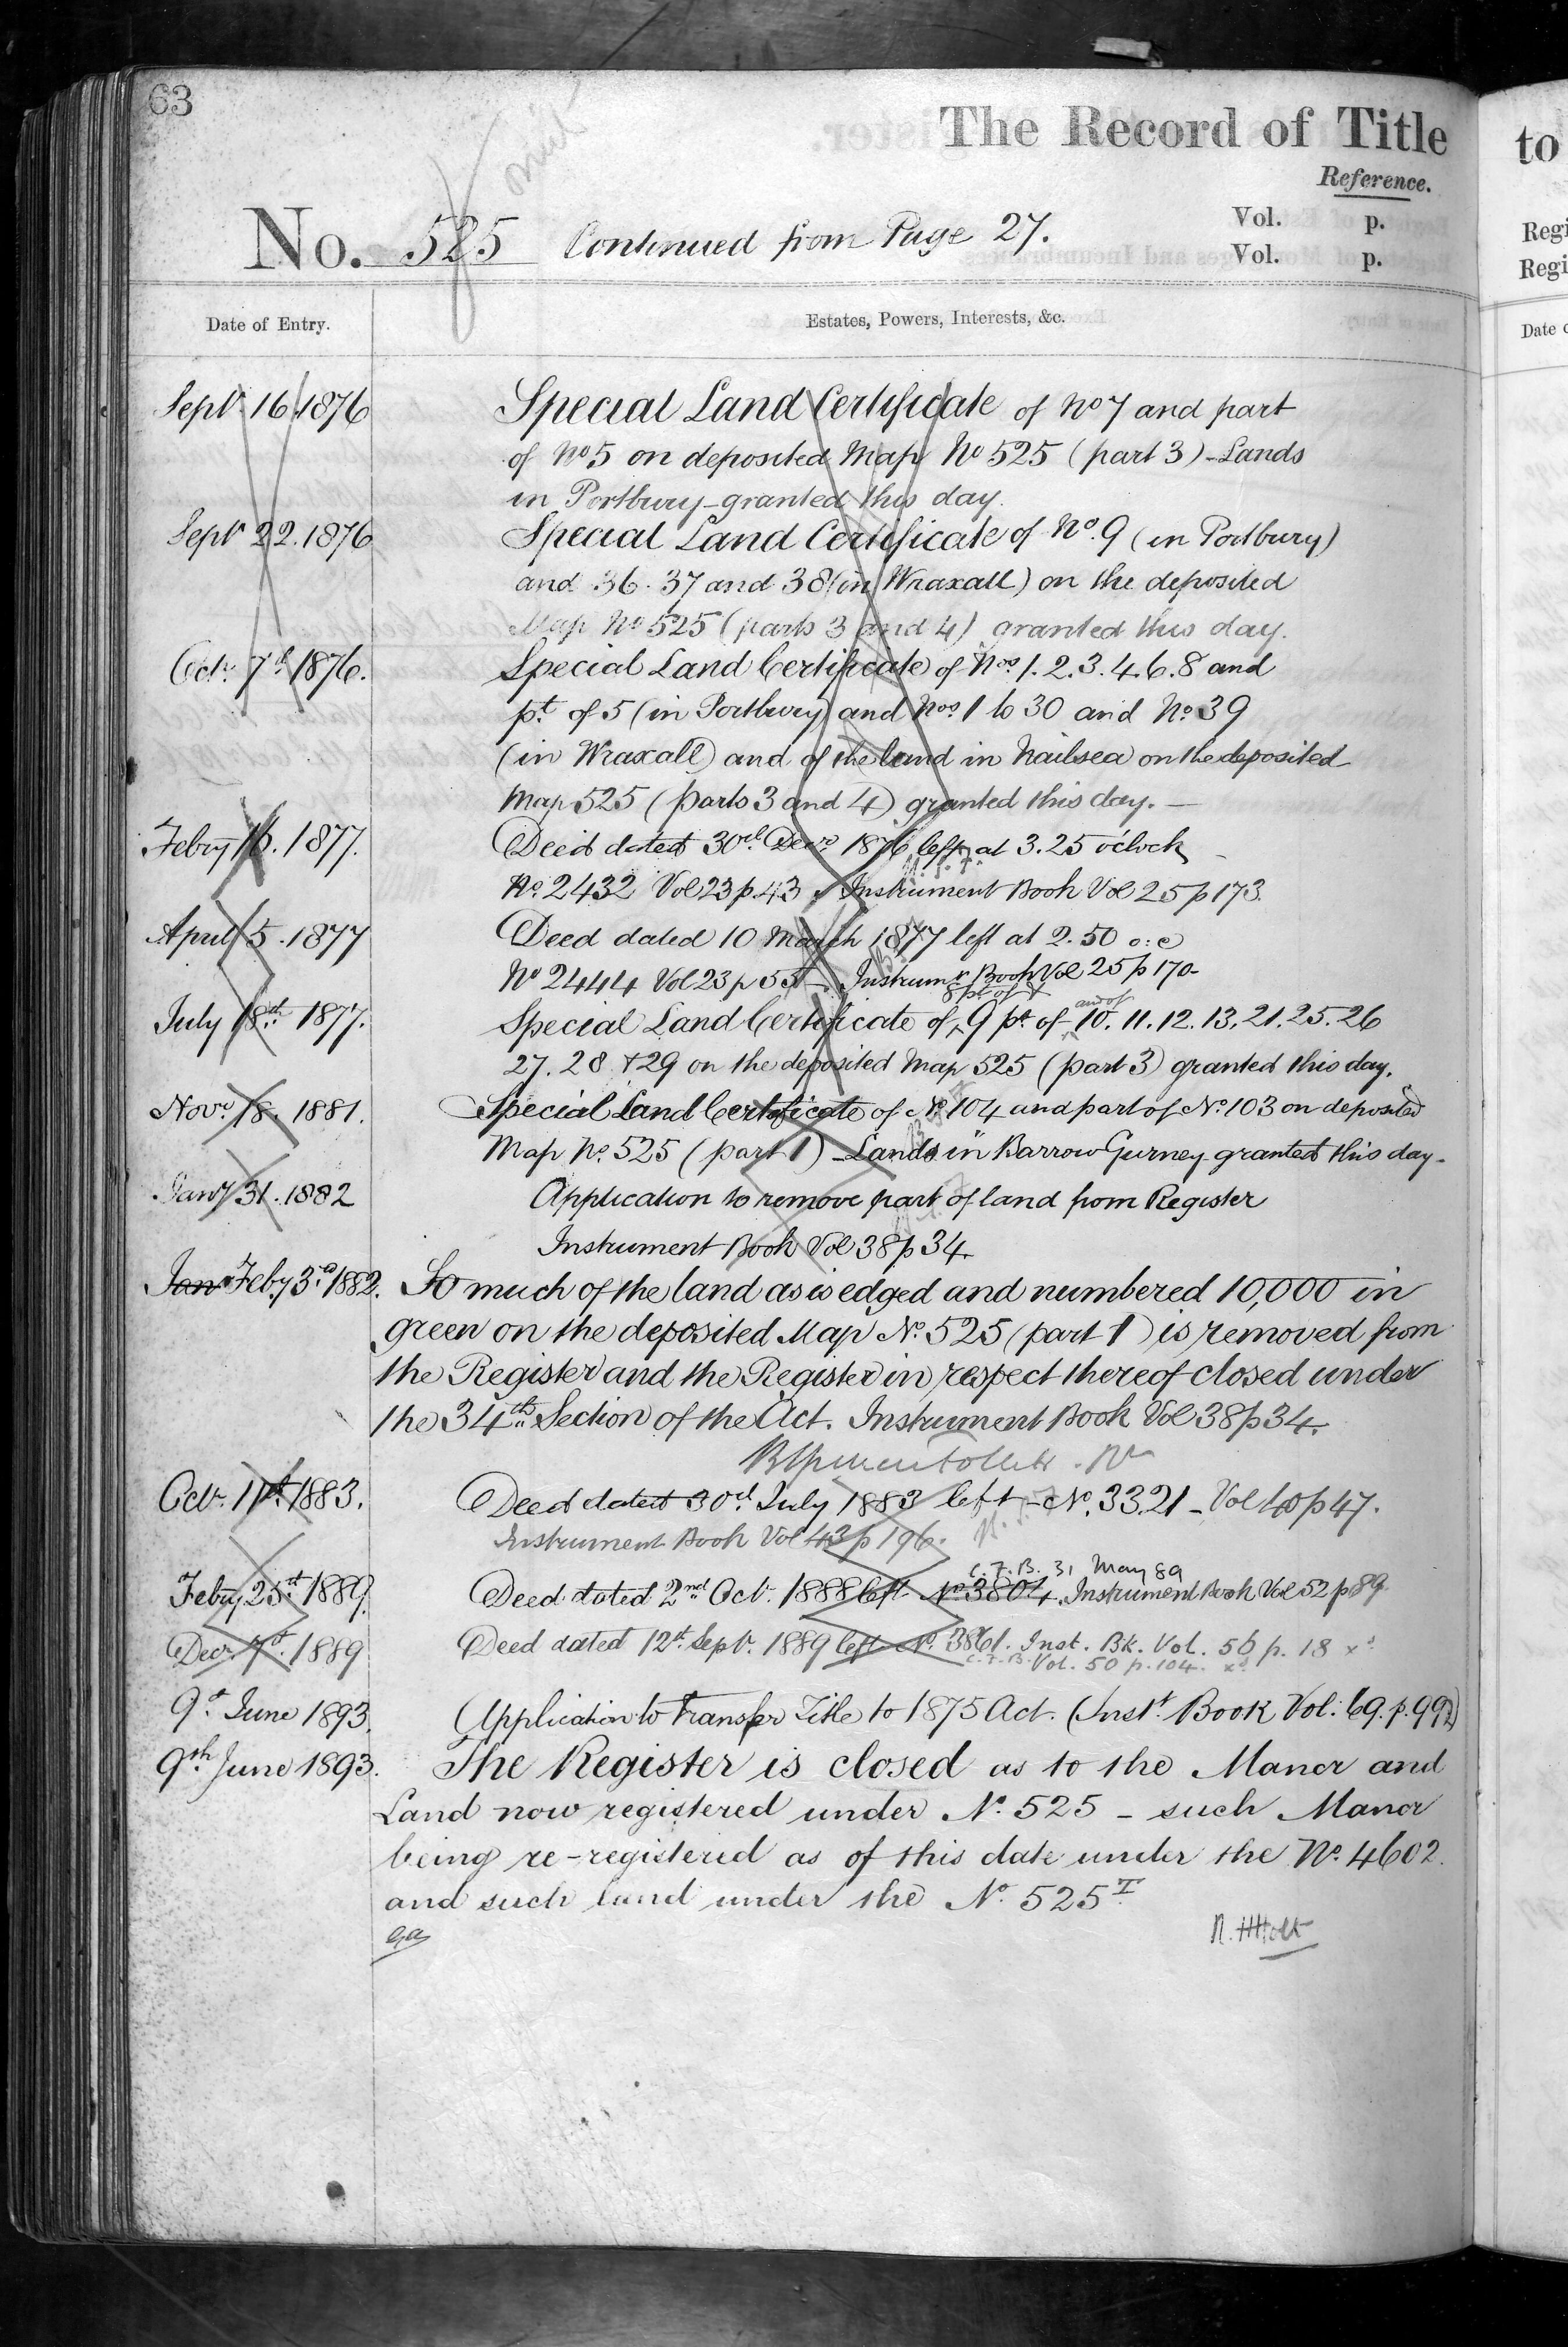 63
The Record of Title
to
Reference.
No. 525 Continued from Page 27.
Vol. p.
Vol. p.
Regi
Regi
Date of Entry.
Estates, Powers, Interests, &c.
Date
Sepr 16 1876
Special Land Certificate of No 7 and part
of No 5 on deposited Map No 525 (part 3) - Lands
in Portbury - granted this day.
Sepr 22. 1876
Special Land Certificate of No. 9 (in Portbury)
and 36. 37 and 38 (in Wraxall) on the deposited
Map No 525 (parts 3 and 4) granted this day.
Octr. 7th 1876.
Special Land Certificate of Nos. 1. 2. 3. 4. 6. 8 and
pt. of 5 (in Portbury) and Nos. 1 to 30 and No. 39
(in Wraxall) and of the land in Nailsea on the deposited
Map 525 (parts 3 and 4) granted this day. —
Febry 16. 1877.
Deed dated 30th Decr. 1876 left at 3.25 o'clock
No. 2432 Vol 23 p. 43 Instrument Book Vol 25 p 173.
April 5. 1877
Deed dated 10 March 1877 left at 2.50 o:c
No 2444 Vol 23 p 55 - Instrumt. Book Vol 25 p 170-
8 pt of &
and of
July 18th 1877.
Special Land Certificate of 9 pt of 10. 11. 12. 13. 21. 25. 26
27. 28 & 29 on the deposited Map 525 (part 3) granted this day.
Novr. 18. 1881.
Special Land Certificate of No. 104 and part of No. 103 on deposited
Map No. 525 (part 1) - Lands in Barrow Gurney granted this day -
Jany 31. 1882
Application to remove part of land from Register
Instrument Book Vol 38 p 34.
Jan Feby 3rd 1882.
So much of the land as is edged and numbered 10,000 in
green on the deposited Map No. 525 (part 1) is removed from
the Register and the Register in respect thereof closed under
the 34th Section of the Act. Instrument Book Vol 38 p 34.
Octr. 11th 1883.
Deed dated 30th July 1883 left - No. 3321 - Vol 40 p 47.
Instrument Book Vol 43 p 196.
C. F. B. 31 May 89
Febry 25th 1889.
Deed dated 2nd Octr. 1888 left No 3804. Instrument Book Vol 52 p 89.
Decr. 7th. 1889
Deed dated 12th Septr. 1889 left No. 3861. Inst. Bk. Vol. 56 p. 18
C. F. B. Vol. 50 p. 104.
9th June 1893.
Application to Transfer Title to 1875 Act. (Inst. Book Vol: 69. p. 992)
9th June 1893.
The Register is closed as to the Manor and
Land now registered under No. 525 - such Manor
being re-registered as of this date under the No. 4602.
and such land under the No. 525 I
R. H Holt